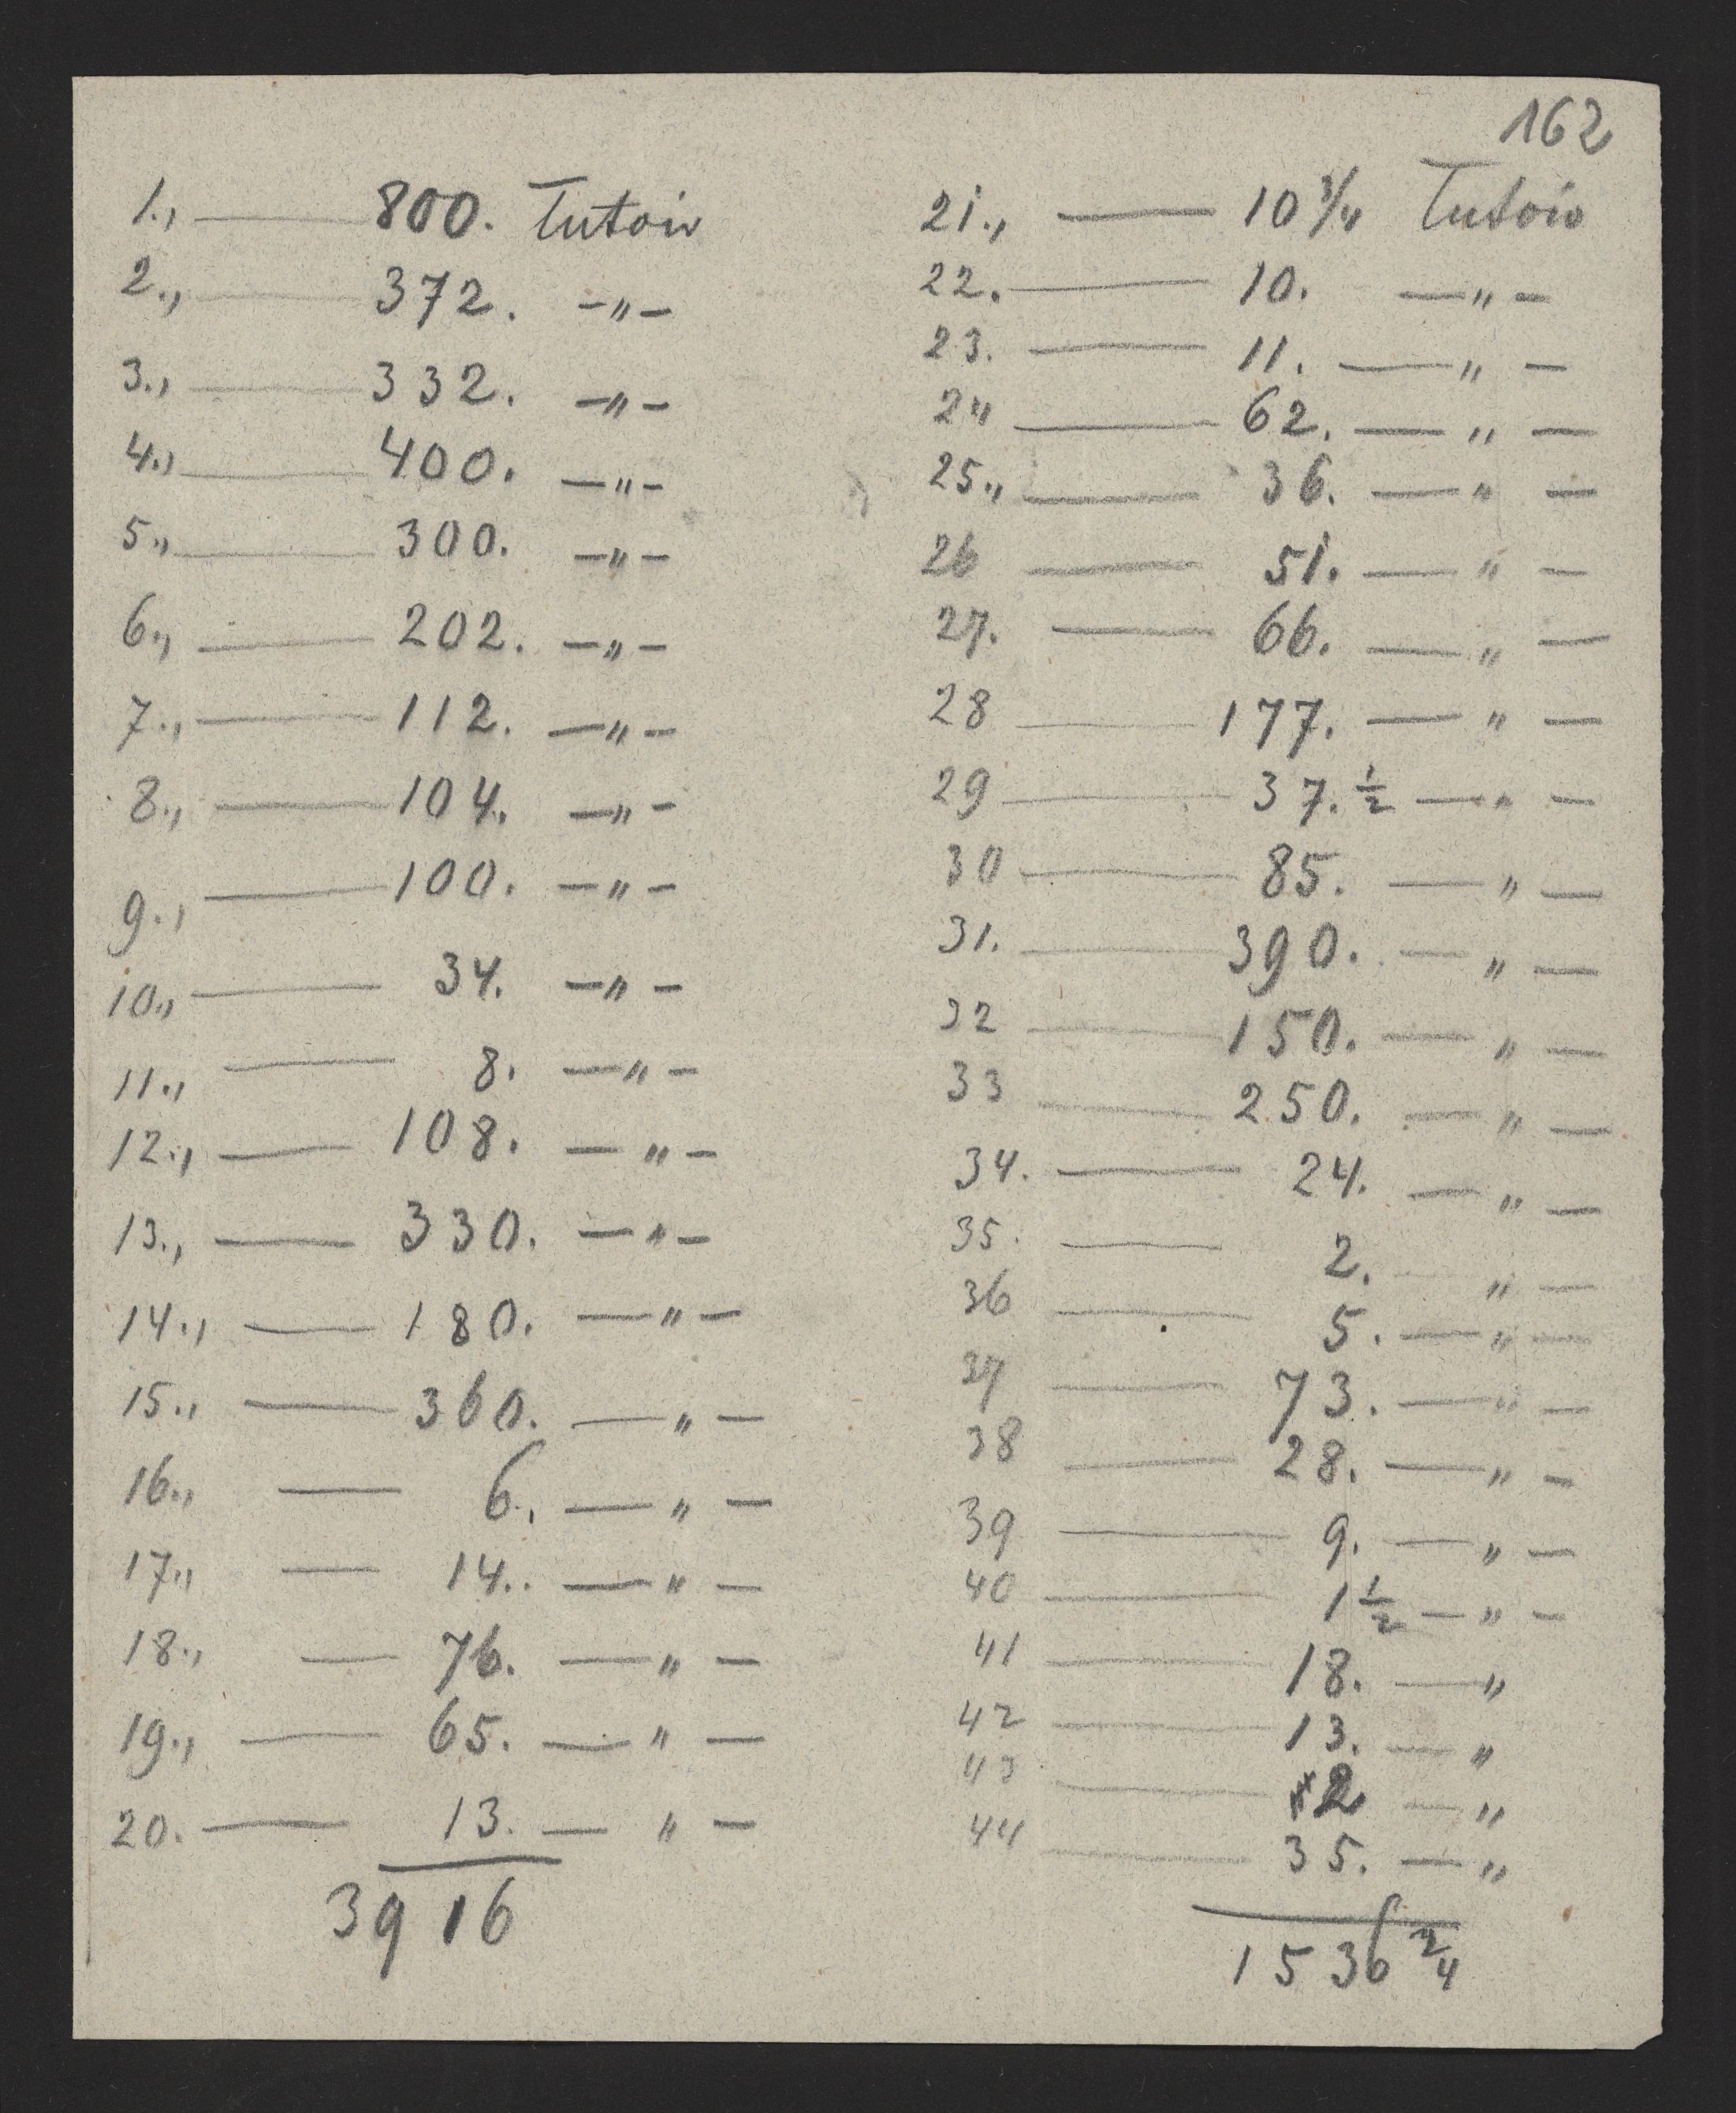 162
1., — 800. Tutoiv
2., — 372. —"—
3., — 332. —"—
4., — 400. —"—
5., — 300. —"—
6., — 202. —"—
7., — 112. —"—
8., — 104. —"—
9., — 100. —"—
10., — 34. —"—
11., — 8. —"—
12., — 108. —"—
13., — 330. —"—
14., — 180. —"—
15., — 360. —"—
16., — 6., —"—
17., — 14.. —"—
18., — 76. —"—
19., — 65. —"—
20. — 13. —"—
3916
21., — 10 3/4 Tutoiv
22. — 10. —"—
23. — 11. —"—
24 — 62. —"—
25., — 36. —"—
26 — 51. —"—
27. — 66. —"—
28 — 177. —"—
29 — 37. 1/2 —"—
30 — 85. —"—
31. — 390. —"—
32 — 150. —"—
33 — 250. —"—
34. — 24. —"—
35. — 2. —"—
36 — 5. —"—
37 — 73. —"—
38 — 28. —"—
39 — 9. —"—
40 — 1 1/2 —"—
41 — 18. —"
42 — 13. —"
43 — 2 —"
44 — 35. —"
1536 3/4